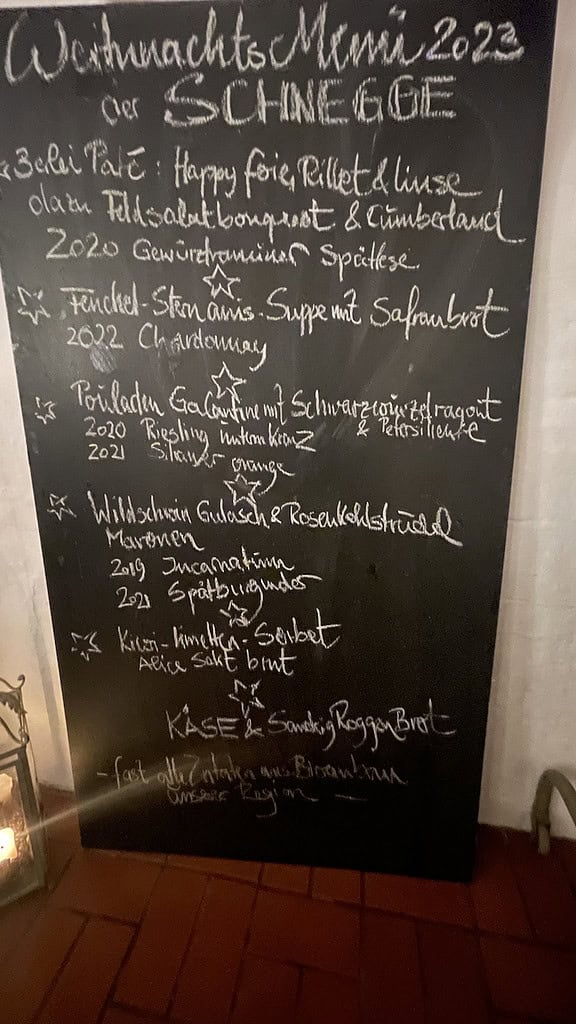 WeihnachtsMenü 2023
der SCHNEGGE
3erlei Paté: Happy foie, Rillet & Linse
dazu Feldsalatbouquet & Cumberland
2020 Gewürztraminer Spätlese
Fenchel-Sternanis-Suppe mit Safranbrot
2022 Chardonnay
Poularden Galantine mit Schwarzwurzelragout
2020 Riesling & Petersilie
2021 Silvaner orange
Wildschwein Gulasch & Rosenkohlstrudel
Maronen
2019 Incarnatum
2021 Spätburgunder
Kiwi-Limetten-Sorbet
Alice Sekt brut
KÄSE & Roggen Brot
- fast alle Zutaten aus
unserer Region -